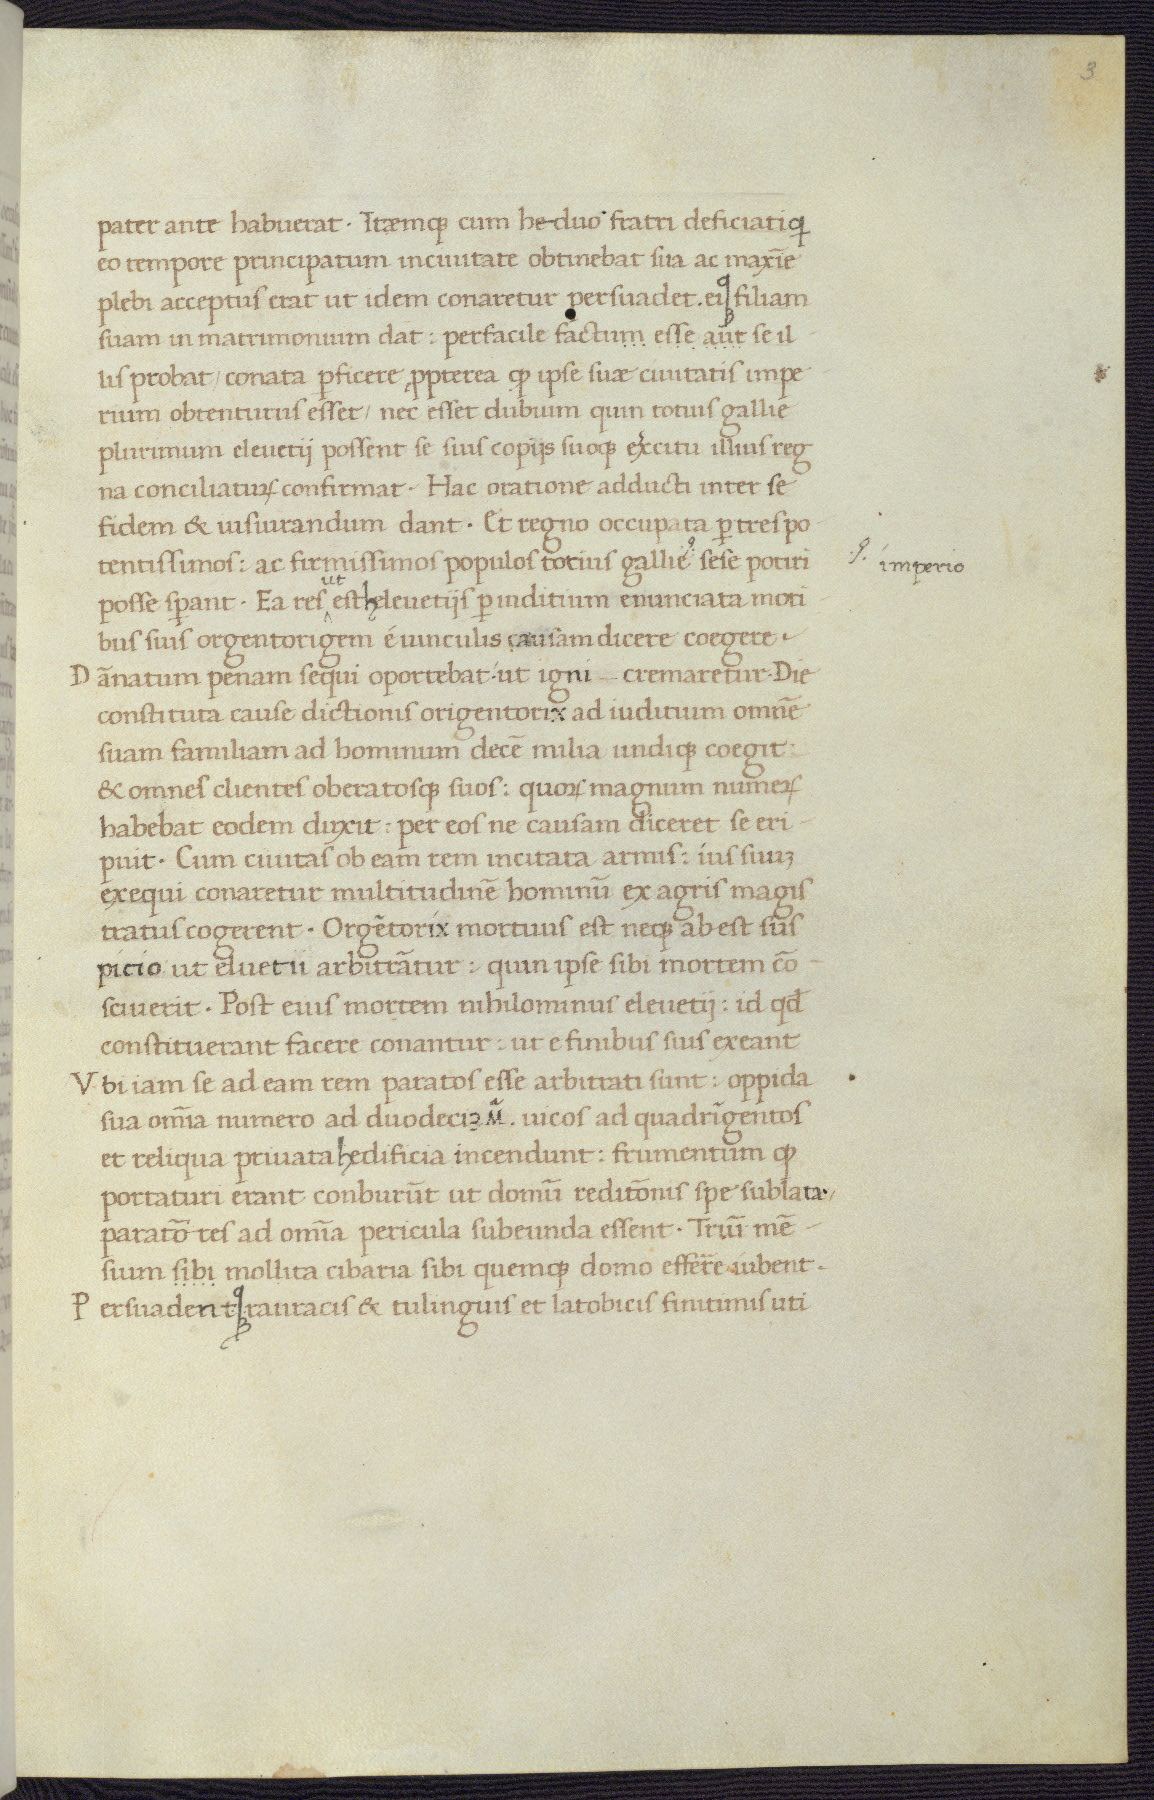 3
pater ante habuerat · Itæmq; cum he-duo fratri deficiati q
eo tempore principatum in ciuitate obtinebat sua ac maxīe
plebi acceptus erat ut idem conaretur persuadet . eiq; filiam
suam in matrimonium dat : perfacile factum esse aūt se il
lis probat / conata ꝑficere ꝓpterea ꝙ ipse suæ ciuitatis impe
rium obtenturus esset / nec esset dubium quin totius gallie
plurimum eleuetij possent se suis copijs suoq; exercitu illius reg
na conciliaturꝝ confirmat · Hac oratione adducti inter se
fidem & iusiurandum dant · Et regno occupata ꝑ tres po
tentissimos : ac firmissimos populos totius gallie sese potiri
imperio
posse sꝑant · Ea res ut est heleuetijs ꝑ inditium enunciata mori
bus suis orgentorigem é uinculis causam dicere coegere ·
Dānatum penam sequi oportebat · ut igni cremaretur · Die
constituta cause dictionis origentorix ad iuditium omnē
suam familiam ad hominum decē milia undiq; coegit :
& omnes clientes oberatosq; suos : quorꝝ magnum numerꝝ
habebat eodem duxit : per eos ne causam diceret se eri
puit · Cum ciuitas ob eam rem incitata armis : ius suuꝫ
exequi conaretur multitudinē hominū ex agris magis
tratus cogerent · Orgētorix mortuus est neq; ab est sus
picio ut eluetii arbitrātur : quin ipse sibi mortem cō
sciuerit · Post eius mortem nihilominus eleuetij : id qđ
constituerant facere conantur : ut e finibus suis exeant
Vbi iam se ad eam rem paratos esse arbitrati sunt : oppida
sua om̄ia numero ad duodeciꝫ M̄ . uicos ad quadrīgentos
et reliqua priuata hedificia incendunt : frumentum ꝙ
portaturi erant conburūt ut domū reditōnis spe sublata · /
paratōres ad om̄ia pericula subeunda essent · Triū mē
sium sibi mollita cibaria sibi quemq; domo efferre iubent .
Persuadentq; rauracis & tulinguis et latobicis finitimis uti